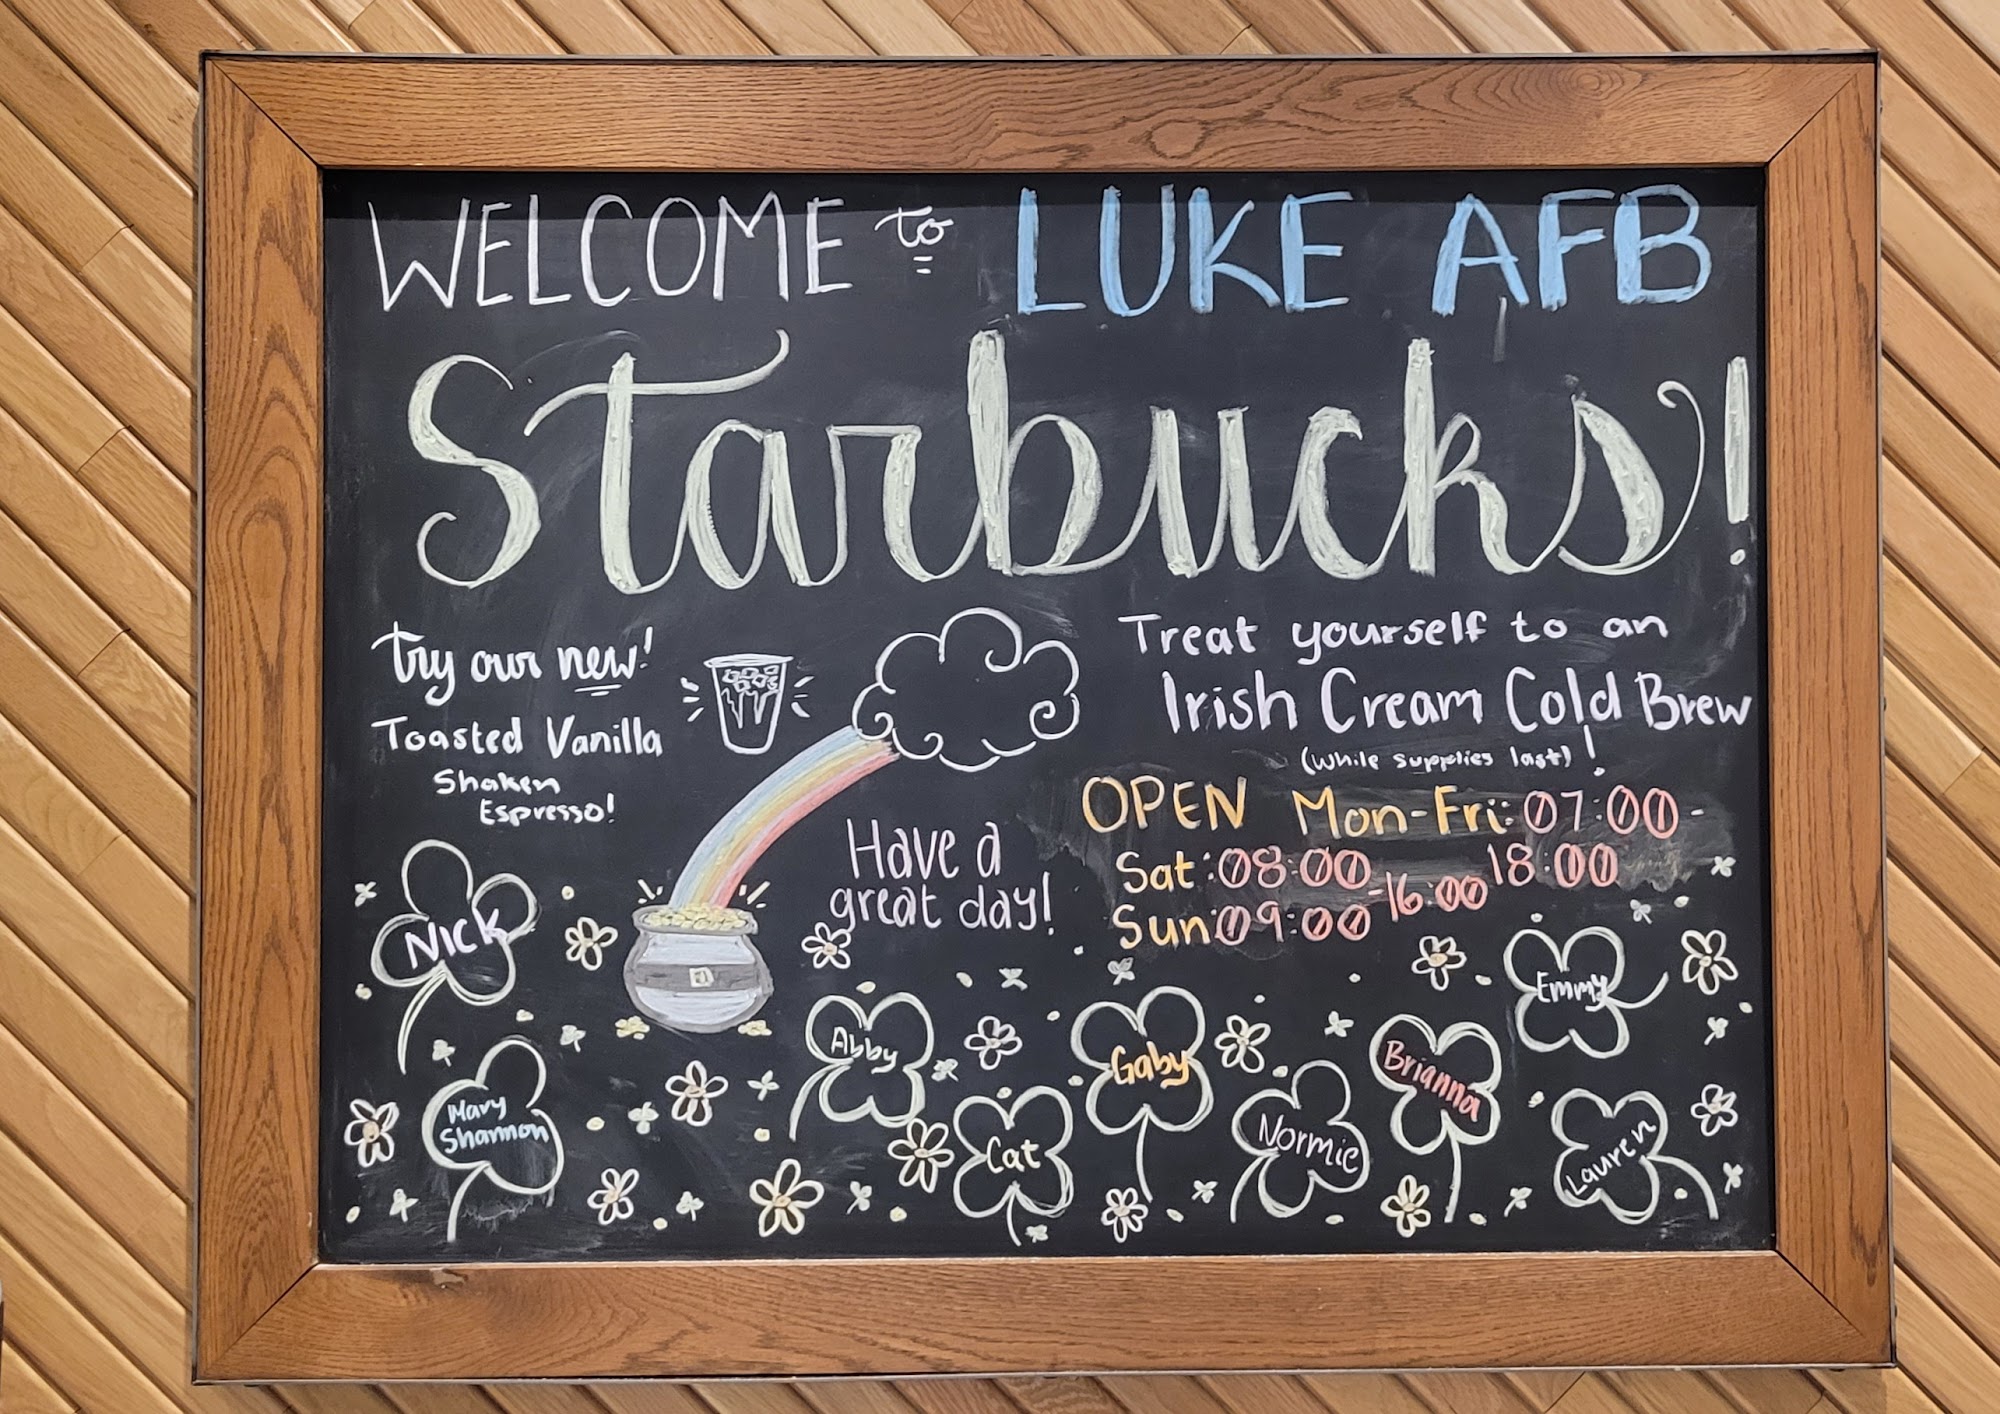 WELCOME to LUKE AFB
Starbucks!
Try our new!
Toasted Vanilla
Shaken
Espresso!
Treat yourself to an
Irish Cream Cold Brew
(while supplies last)!
OPEN Mon-Fri: 07:00-
18:00
Sat: 08:00
-16:00
Sun: 09:00
Have a
great day!
Nick
Mary
Shannon
Abby
Cat
Gaby
Normie
Brianna
Emmy
Lauren